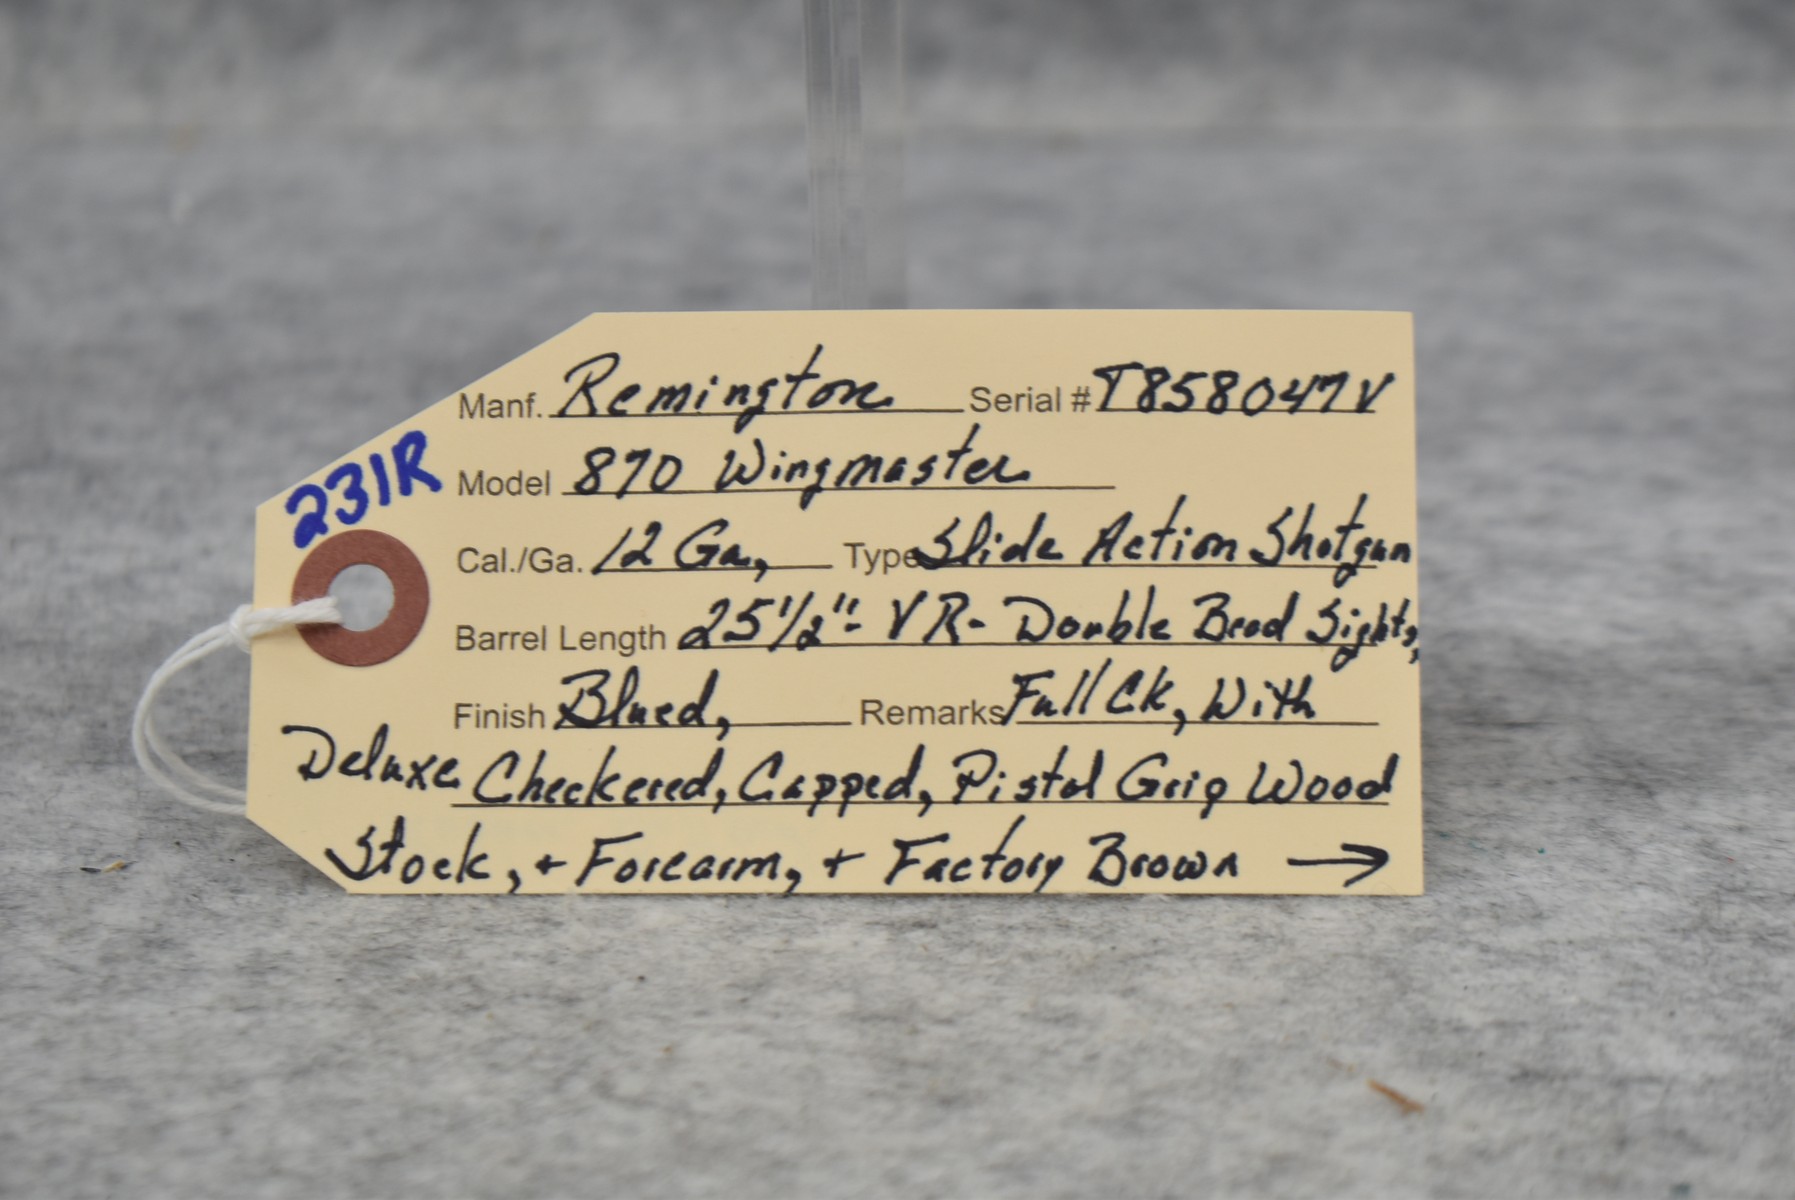 Manf. Remington Serial # T858047V
231R
Model 870 Wingmaster
Cal./Ga. 12 Ga, Type Slide Action Shotgun
Barrel Length 25 1/2"- VR- Double Bead Sights,
Finish Blued, Remarks Full Ck, With
Deluxe Checkered, Capped, Pistol Grip Wood
Stock, + Forearm, + Factory Brown →